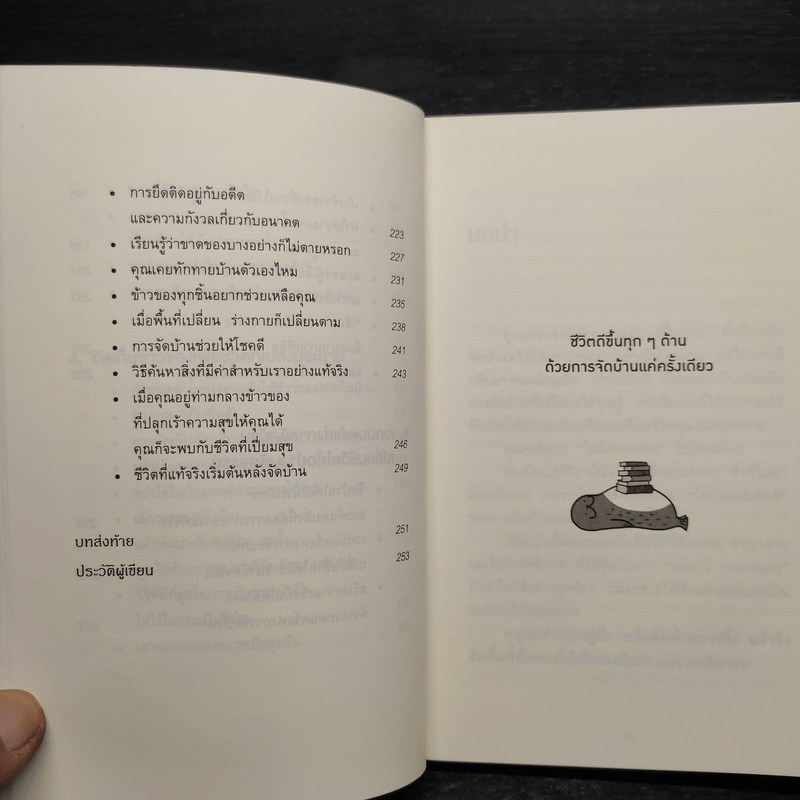 • การยึดติดอยู่กับอดีต
และความกังวลเกี่ยวกับอนาคต 223
• เรียนรู้ว่าขาดของบางอย่างก็ไม่ตายหรอก 227
• คุณเคยทักทายบ้านตัวเองไหม 231
• ข้าวของทุกชิ้นอยากช่วยเหลือคุณ 235
• เมื่อพื้นที่เปลี่ยน ร่างกายก็เปลี่ยนตาม 238
• การจัดบ้านช่วยให้โชคดี 241
• วิธีค้นหาสิ่งที่มีค่าสำหรับเราอย่างแท้จริง 243
• เมื่อคุณอยู่ท่ามกลางข้าวของ
ที่ปลุกเร้าความสุขให้คุณได้
คุณก็จะพบกับชีวิตที่เปี่ยมสุข 246
• ชีวิตที่แท้จริงเริ่มต้นหลังจัดบ้าน 249
บทส่งท้าย 251
ประวัติผู้เขียน 253
ชีวิตดีขึ้นทุก ๆ ด้าน
ด้วยการจัดบ้านแค่ครั้งเดียว